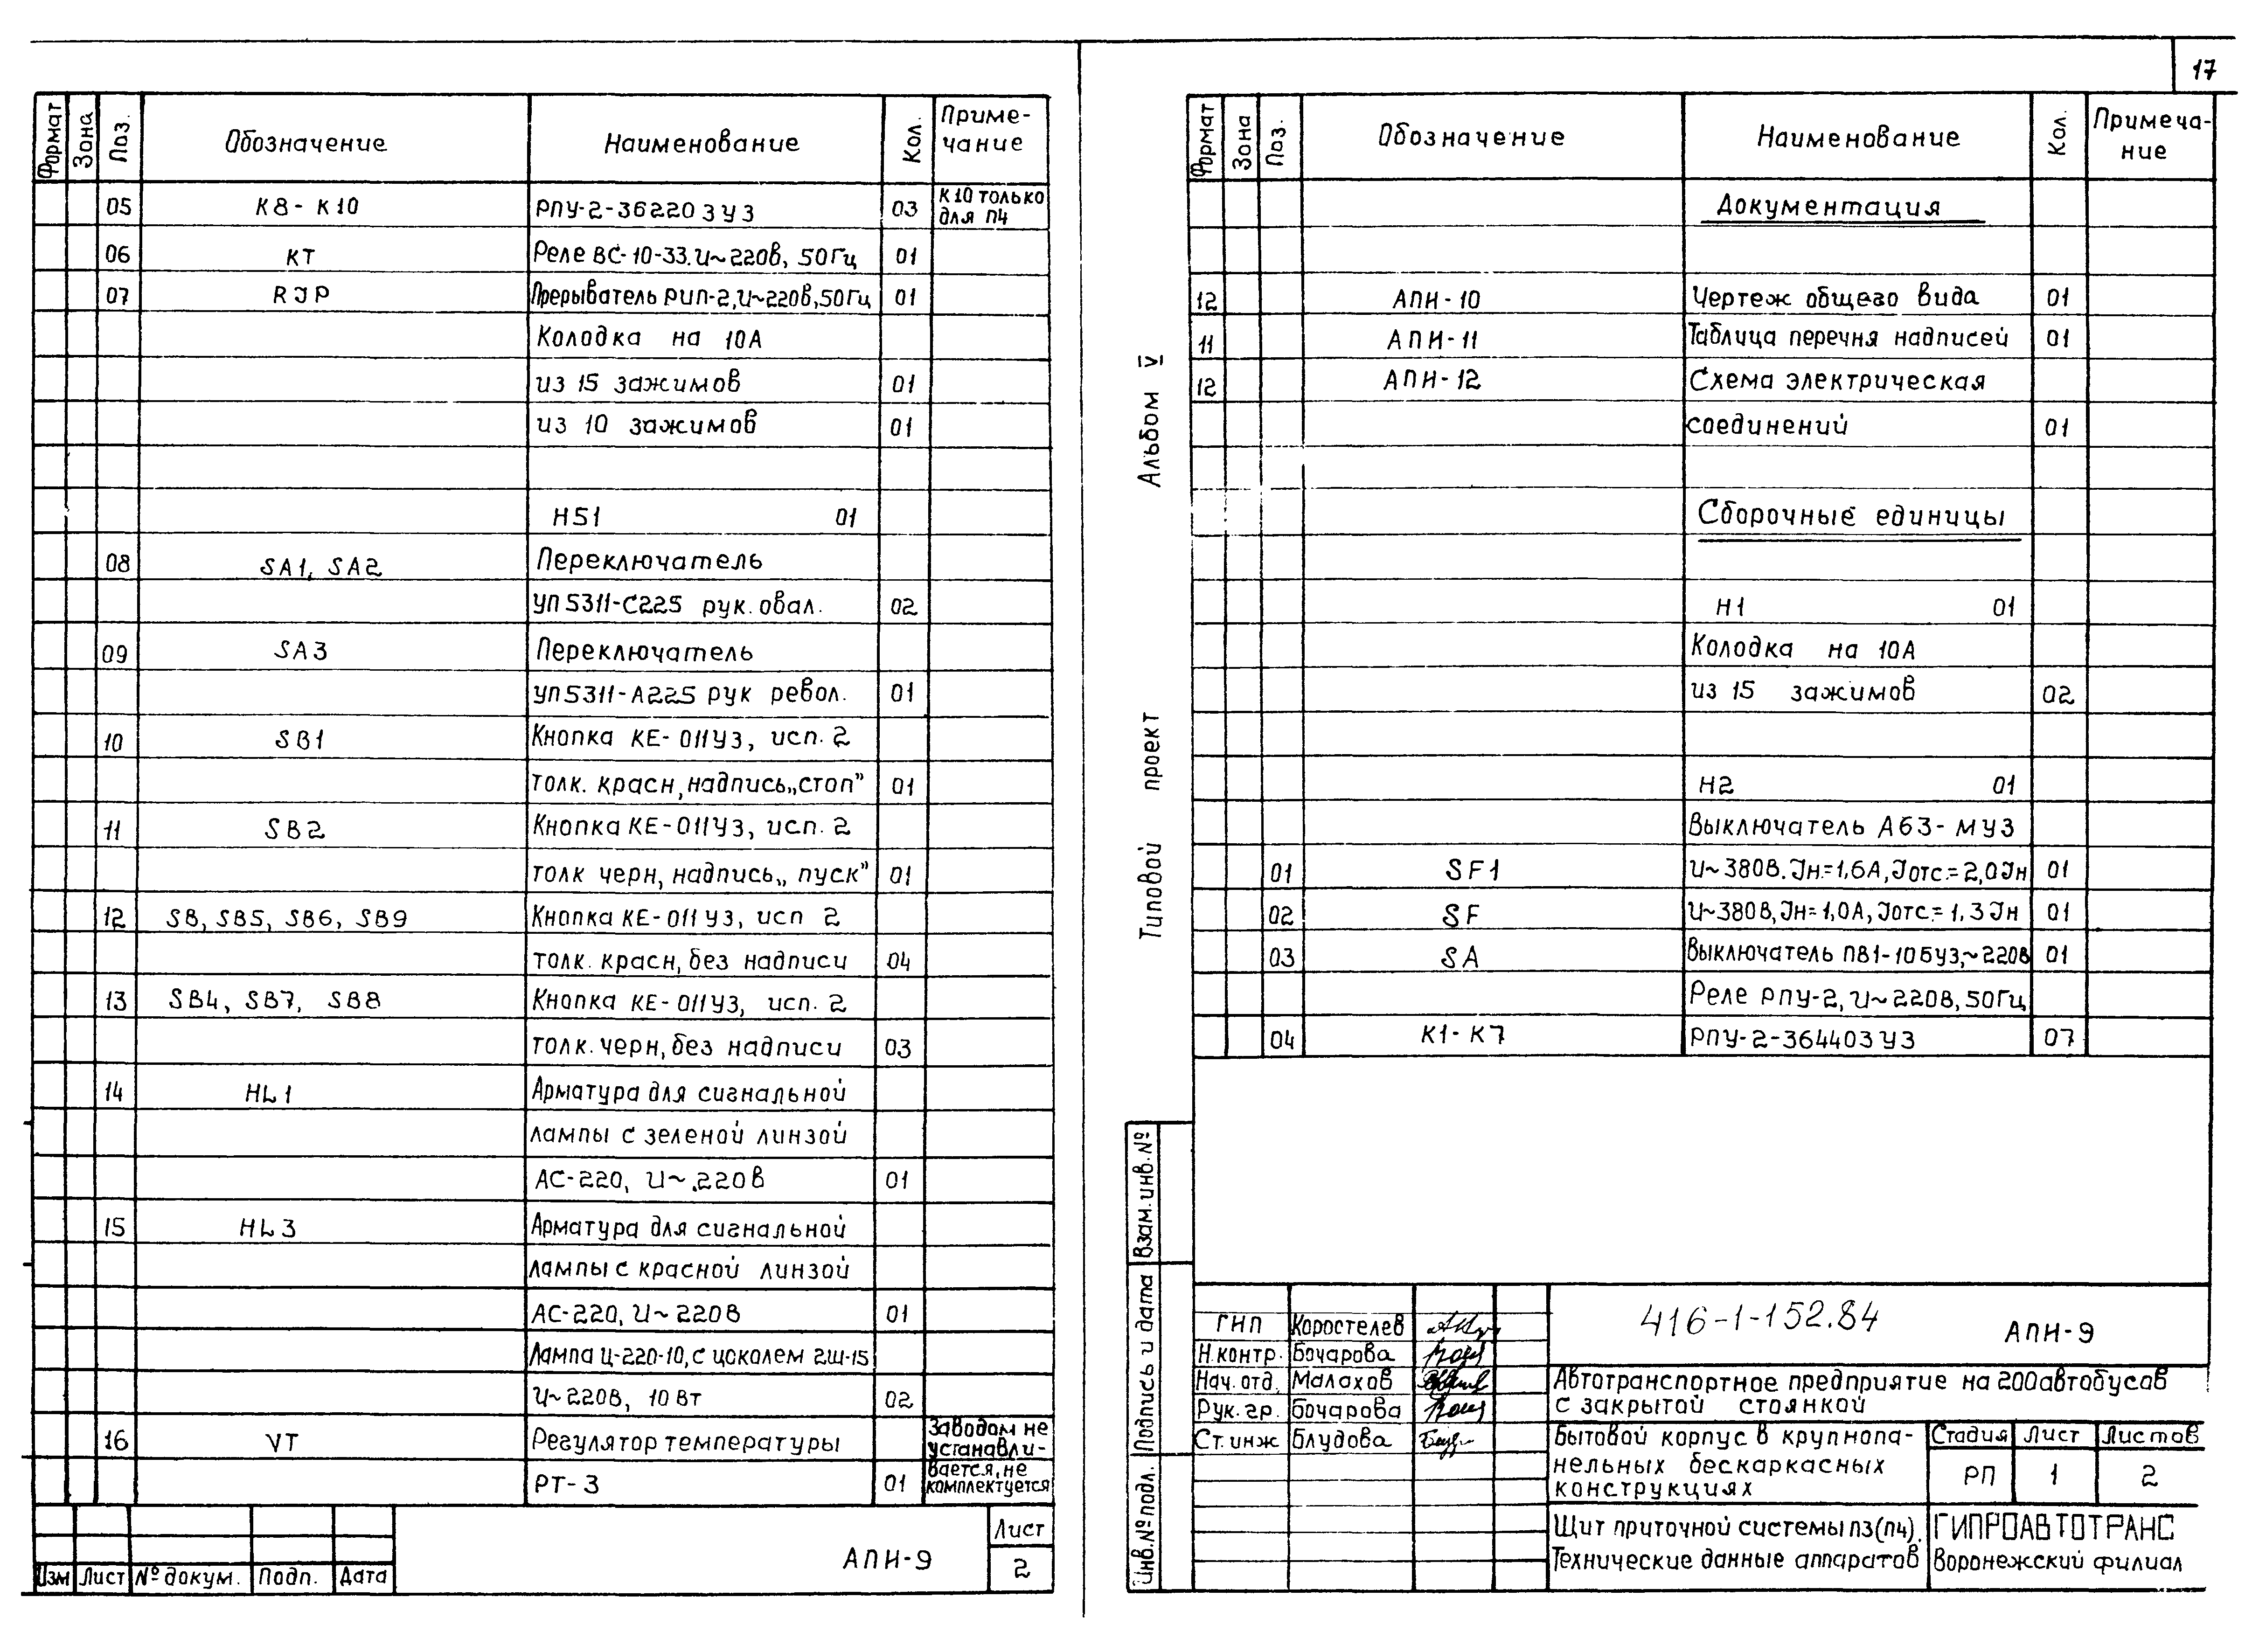 17
Формат Зона Поз. Обозначение Наименование Кол. Примечание
05 К8-К10 РПУ-2-362203У3 03 К10 только для П4
06 КТ Реле ВС-10-33. U~220В, 50Гц 01
07 RJP Прерыватель РИП-2, U~220В, 50Гц 01
Колодка на 10А
из 15 зажимов 01
из 10 зажимов 01
HS1 01
08 SA1, SA2 Переключатель
УП5311-С225 рук. овал. 02
09 SA3 Переключатель
УП5311-А225 рук револ. 01
10 SB1 Кнопка КЕ-011У3, исп. 2
толк. красн, надпись „стоп” 01
11 SB2 Кнопка КЕ-011У3, исп. 2
толк черн, надпись „пуск” 01
12 SB, SB5, SB6, SB9 Кнопка КЕ-011У3, исп 2
толк. красн, без надписи 04
13 SB4, SB7, SB8 Кнопка КЕ-011У3, исп. 2
толк. черн, без надписи 03
14 HL1 Арматура для сигнальной
лампы с зеленой линзой
АС-220, U~220В 01
15 HL3 Арматура для сигнальной
лампы с красной линзой
АС-220, U~220В 01
Лампа Ц-220-10, с цоколем 2Ш-15
U~220В, 10Вт 02
16 VT Регулятор температуры Заводом не устанавли-
РТ-3 01 вается, не комплектуется
Изм Лист № докум. Подп. Дата
АПН-9
Лист
2
Альбом V
Типовой проект
Формат Зона Поз. Обозначение Наименование Кол. Примечание
Документация
12 АПН-10 Чертеж общего вида 01
11 АПН-11 Таблица перечня надписей 01
12 АПН-12 Схема электрическая
соединений 01
Сборочные единицы
Н1 01
Колодка на 10А
из 15 зажимов 02
Н2 01
Выключатель А63-МУ3
01 SF1 U~380В. Jн.=1,6А, Jотс.=2,0Jн 01
02 SF U~380В, Jн=1,0А, Jотс.=1,3Jн 01
03 SA Выключатель ПВ1-10БУ3,~220В 01
Реле РПУ-2, U~220В, 50Гц
04 К1-К7 РПУ-2-364403У3 07
Взам. инв. №
Подпись и дата
Инв. № подл.
ГНП Коростелев
Н.контр. Бочарова
Нач. отд. Малахов
Рук. гр. Бочарова
Ст. инж Блудова
416-1-152.84 АПН-9
Автотранспортное предприятие на 200 автобусов
с закрытой стоянкой
Бытовой корпус в крупнопа-
нельных бескаркасных
конструкциях
Стадия Лист Листов
РП 1 2
Щит приточной системы П3(П4).
Технические данные аппаратов
ГИПРОАВТОТРАНС
Воронежский филиал